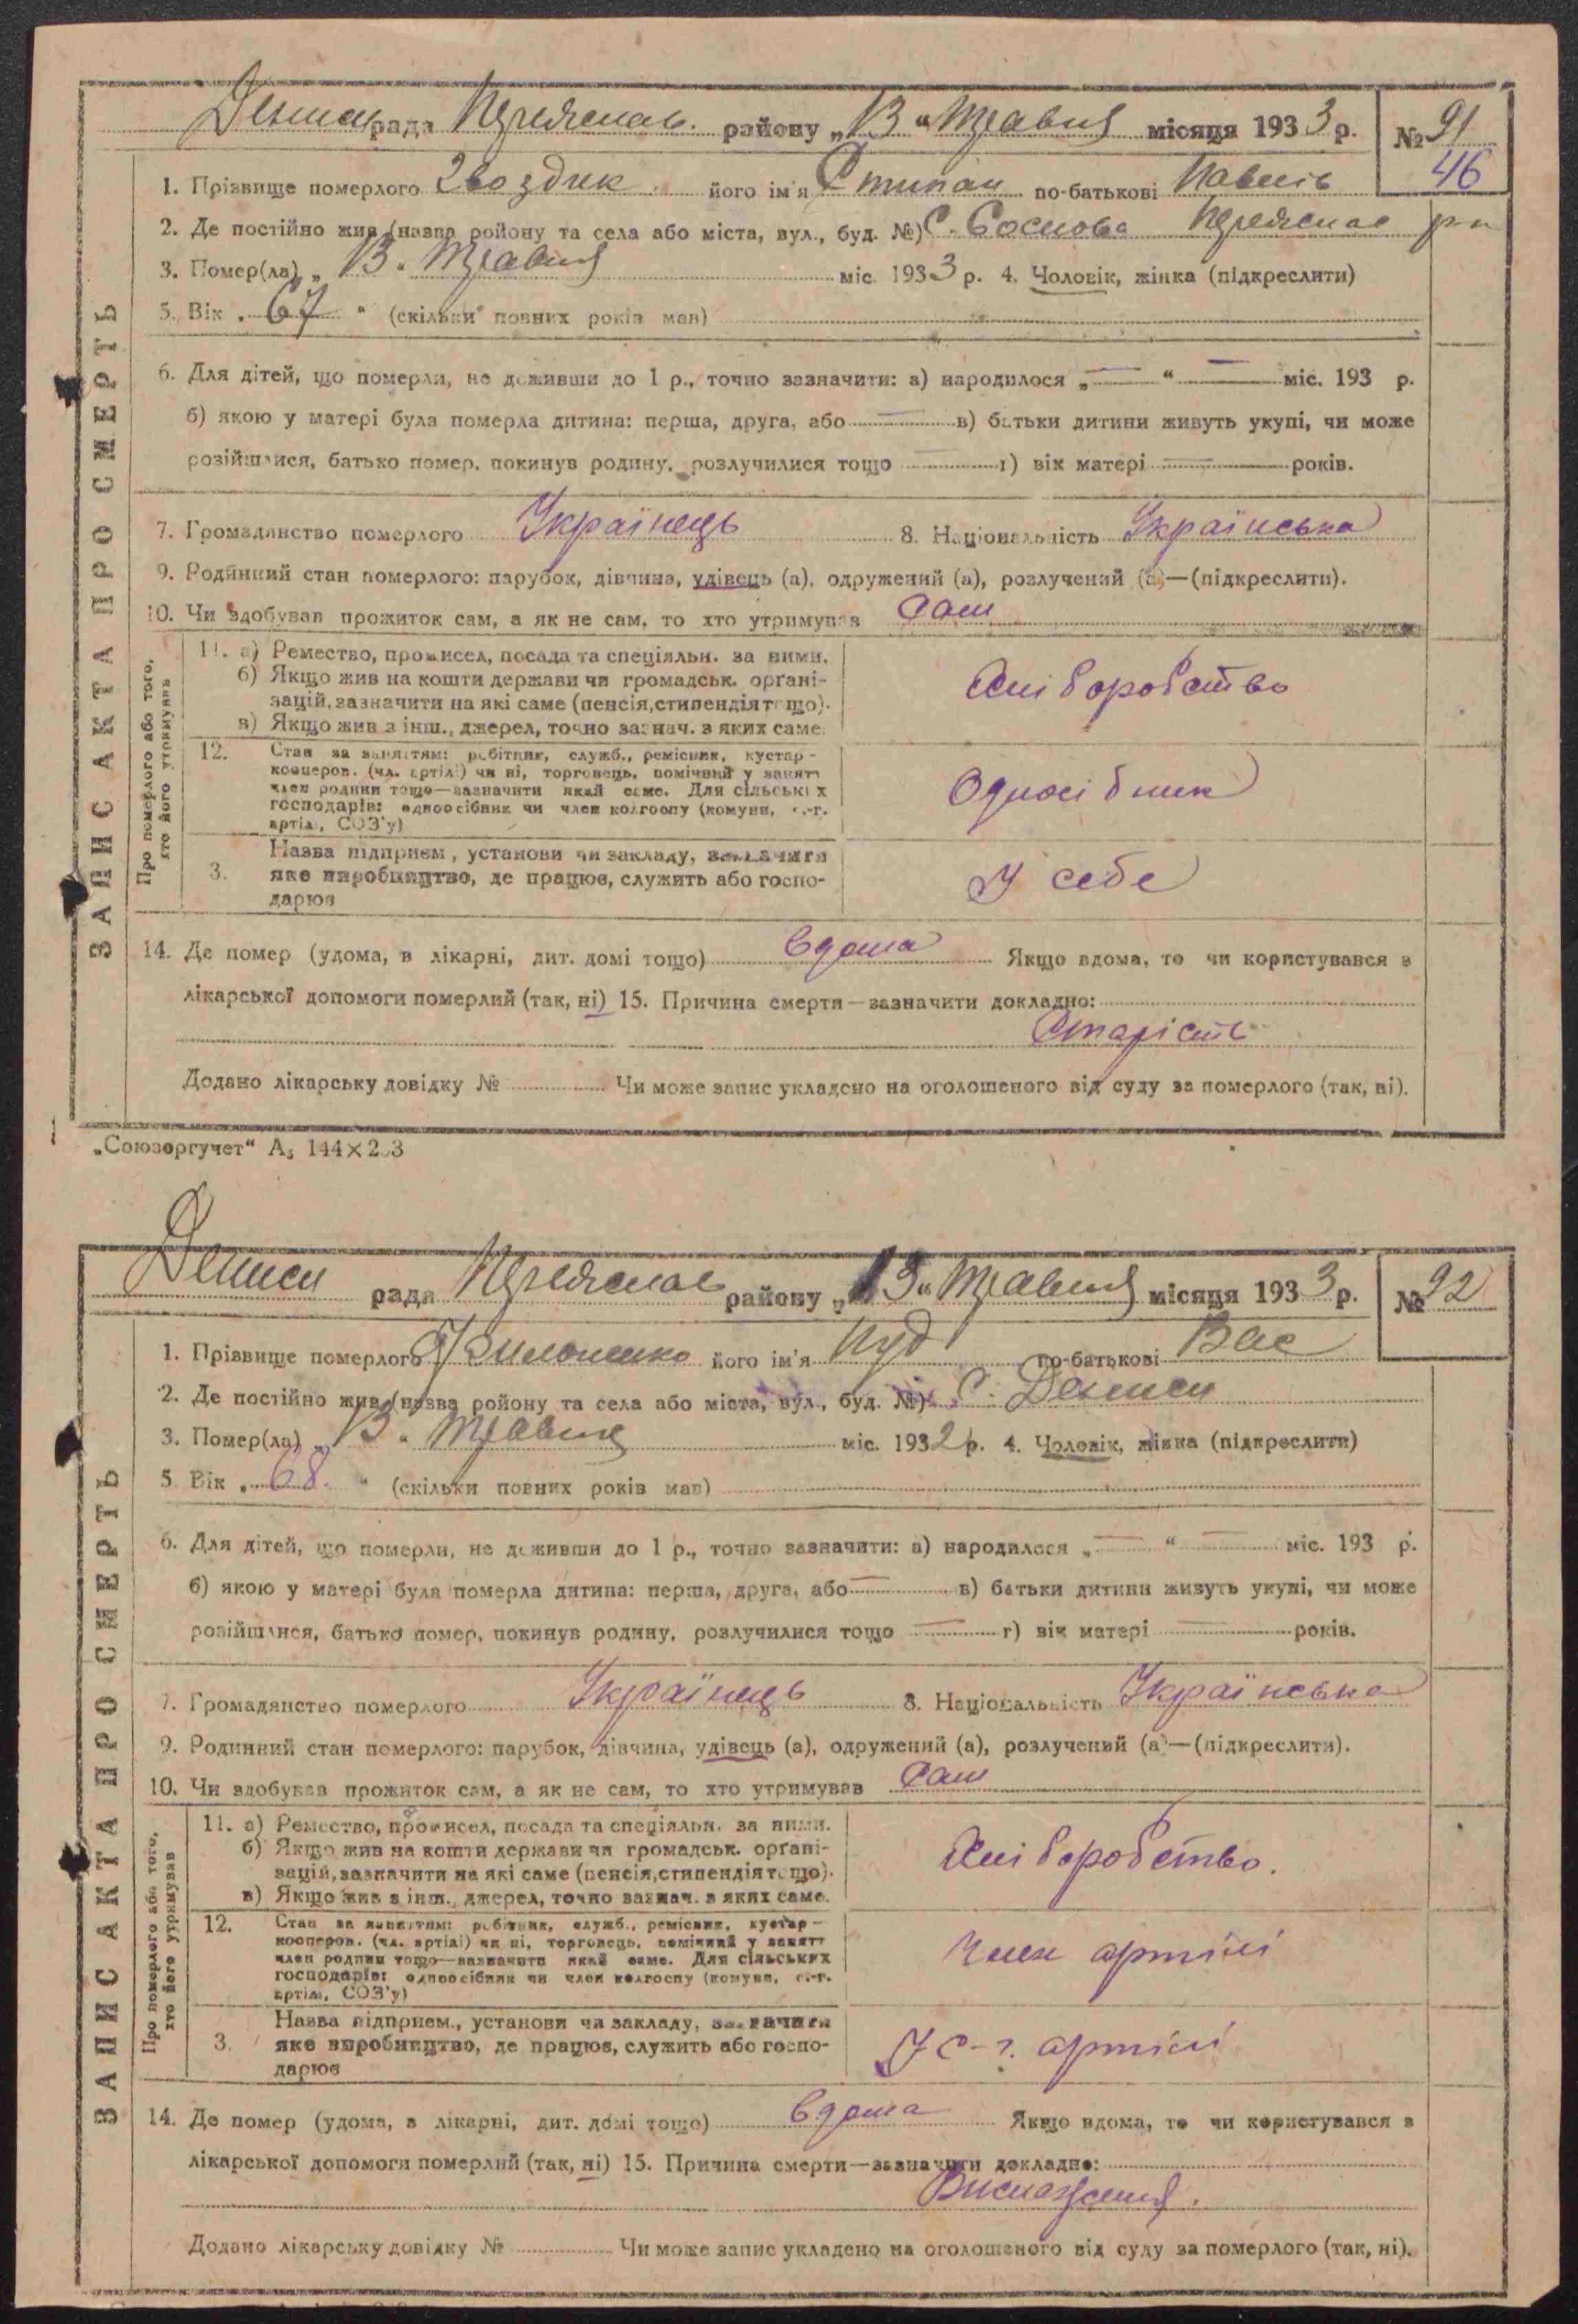 Дениси рада Переяслав. району „13“ Травня місяця 1933 р. № 91
46
1. Прізвище померлого Гвоздик його ім'я Степан по-батькові Павлів
2. Де постійно жив (назва ройону та села або міста, вул., буд. №) С. Соснова Переяслав р-н
3. Помер(ла) „13“ Травня міс. 1933 р. 4. Чоловік, жінка (підкреслити)
5. Вік „67“ (скільки повних років мав)
6. Для дітей, що померли, не доживши до 1 р., точно зазначити: а) народилося „—“ — міс. 193 р.
б) якою у матері була померла дитина: перша, друга, або — в) батьки дитини живуть укупі, чи може
розійшлися, батько помер, покинув родину, розлучилися тощо — г) вік матері — років.
7. Громадянство померлого Українець 8. Національність Українська
9. Родинний стан померлого: парубок, дівчина, удівець (а), одружений (а), розлучений (а)—(підкреслити).
10. Чи здобував прожиток сам, а як не сам, то хто утримував Сам
ЗАПИС АКТА ПРО СМЕРТЬ
Про померлого або того,
хто його утримував
11. а) Ремество, промисел, посада та спеціяльн. за ними.
б) Якщо жив на кошти держави чи громадськ. органі-
зацій, зазначити на які саме (пенсія, стипендія тощо).
в) Якщо жив з інш., джерел, точно зазнач. з яких саме.
Хліборобство
12. Стан за заняттям: робітник, служб., ремісник, кустар-
кооперов. (чл. артілі) чи ні, торговець, помічний у занятт
член родини тощо—зазначити який саме. Для сільських
господарів: одноосібник чи член колгоспу (комуни, с.-г.
артілі, СОЗ'у)
Односібник
3. Назва підприєм., установи чи закладу, зазначити
яке виробництво, де працює, служить або госпо-
дарює
У себе
14. Де помер (удома, в лікарні, дит. домі тощо) вдома Якщо вдома, то чи користувався з
лікарської допомоги померлий (так, ні) 15. Причина смерти—зазначити докладно:
Старість
Додано лікарську довідку № Чи може запис укладено на оголошеного від суду за померлого (так, ні).
„Союзоргучет“ А₅ 144×203
Дениси рада Переяслав району „13“ Травня місяця 1933 р. № 92
1. Прізвище померлого його ім'я по-батькові Вас
2. Де постійно жив (назва ройону та села або міста, вул., буд. №) С. Дениси
3. Помер(ла) „13“ Травня міс. 1932 р. 4. Чоловік, жінка (підкреслити)
5. Вік „68.“ (скільки повних років мав)
6. Для дітей, що померли, не доживши до 1 р., точно зазначити: а) народилося „—“ — міс. 193 р.
б) якою у матері була померла дитина: перша, друга, або — в) батьки дитини живуть укупі, чи може
розійшлися, батько помер, покинув родину, розлучилися тощо — г) вік матері — років.
7. Громадянство померлого Українець 8. Національність Українська
9. Родинний стан померлого: парубок, дівчина, удівець (а), одружений (а), розлучений (а)—(підкреслити).
10. Чи здобував прожиток сам, а як не сам, то хто утримував Сам
ЗАПИС АКТА ПРО СМЕРТЬ
Про померлого або того,
хто його утримував
11. а) Ремество, промисел, посада та спеціяльн. за ними.
б) Якщо жив на кошти держави чи громадськ. органі-
зацій, зазначити на які саме (пенсія, стипендія тощо).
в) Якщо жив з інш., джерел, точно зазнач. з яких саме.
Хліборобство.
12. Стан за заняттям: робітник, служб., ремісник, кустар-
кооперов. (чл. артілі) чи ні, торговець, помічний у занятт
член родини тощо—зазначити який саме. Для сільських
господарів: одноосібник чи член колгоспу (комуни, с.-г.
артілі, СОЗ'у)
Член артілі
3. Назва підприєм., установи чи закладу, зазначити
яке виробництво, де працює, служить або госпо-
дарює
У с-г. артілі
14. Де помер (удома, в лікарні, дит. домі тощо) вдома Якщо вдома, то чи користувався з
лікарської допомоги померлий (так, ні) 15. Причина смерти—зазначити докладно:
Виснаження.
Додано лікарську довідку № Чи може запис укладено на оголошеного від суду за померлого (так, ні).